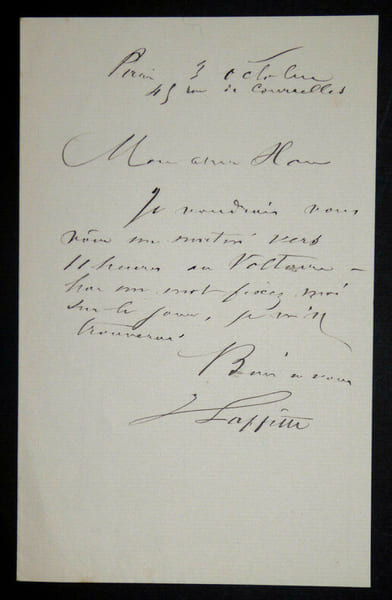 Paris 3 octobre
45 rue de Courcelles
Mon cher
Je voudrais vous
voir un matin vers
11 heures au Voltaire -
par un mot fixez moi
sur le jour, je m'y
trouverai
Bien à vous
J Laffitte